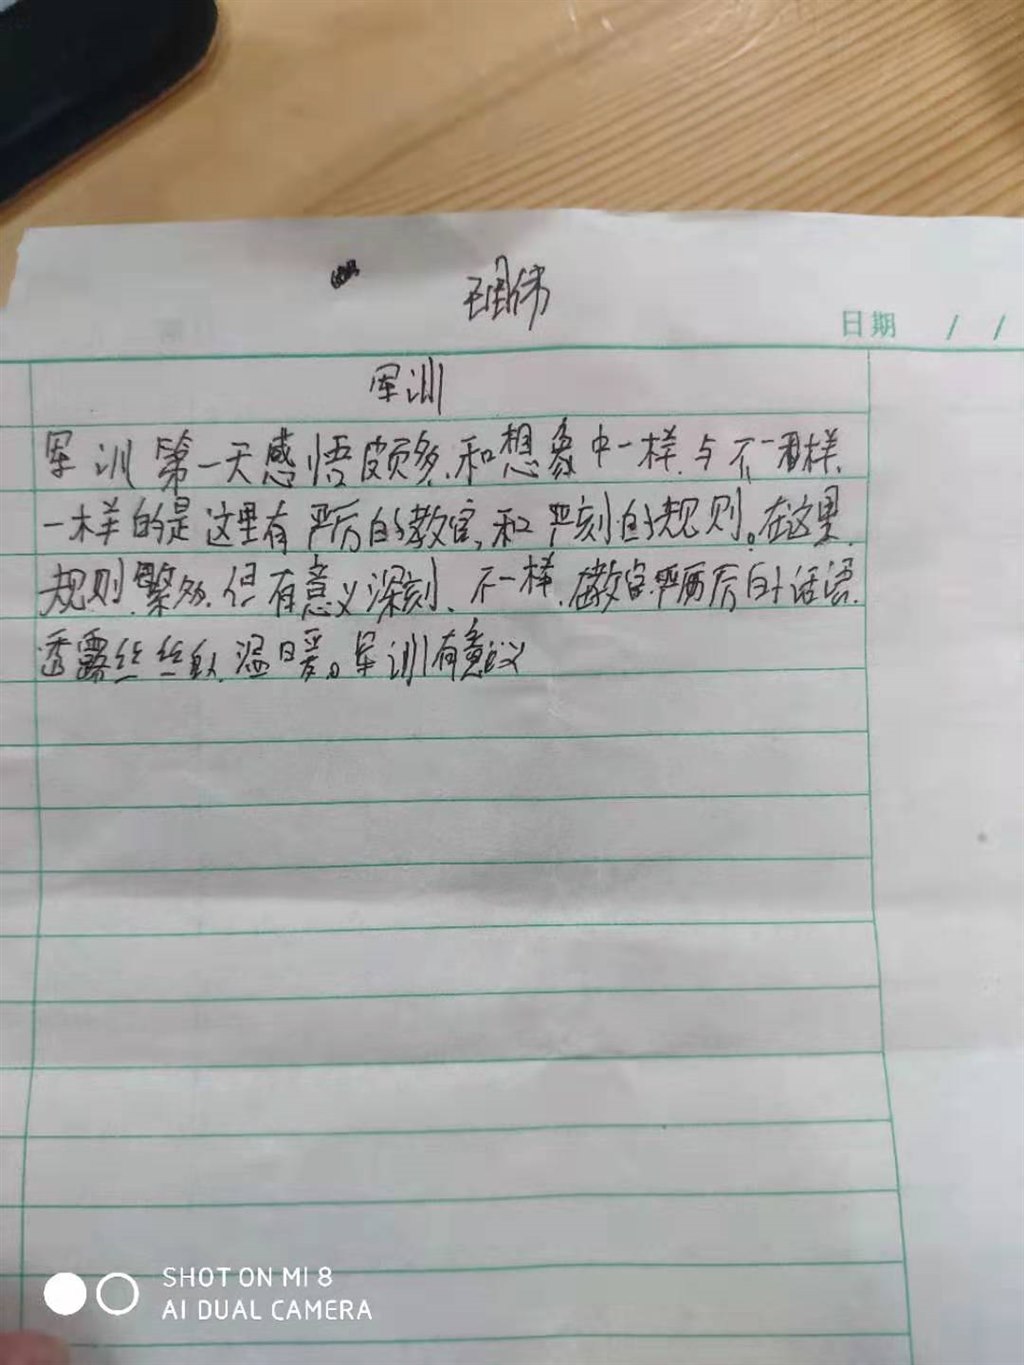 王国伟
日期 / /
军训
军训第一天感悟颇多.和想象中一样.与不一样.
一样的是这里有严厉的教官,和严刻的规则。在这里.
规则.繁多.但有意义深刻、不一样.在教官.严厉后的话语.
透露丝丝的.温暖。军训有意义
SHOT ON MI 8
AI DUAL CAMERA